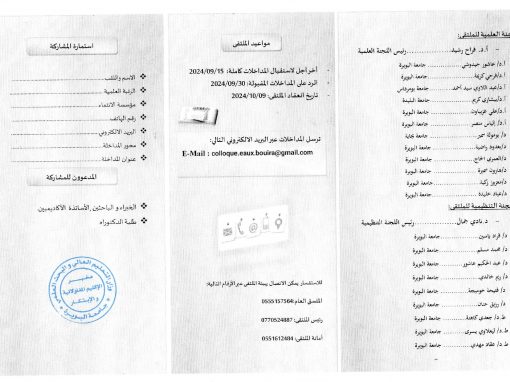 اللجنة العلمية للملتقى:
- أ.د. فراح رشيد. رئيس اللجنة العلمية
أ.د/عاشور حيدوشي جامعة البويرة
أ.د/فرحي كريمة جامعة البويرة
أ.د/عبد اللاوي سيد أحمد جامعة بومرداس
أ.د/بيشاري كريم جامعة البليدة
أ.د/علي عزيباوي جامعة البويرة
أ.د. إلياس مناصر جامعة البويرة
د/ بومولة سمر جامعة بجاية
د/بعدود راضية جامعة البويرة
د/العمري الحاج جامعة البويرة
د/هارون سميرة جامعة البويرة
د/معزوز زكية جامعة البويرة
د/عباد خليدة جامعة البويرة
اللجنة التنظيمية للملتقى:
- د. نادي جمال. رئيس اللجنة التنظيمية
د/ قراد ياسين جامعة البويرة
د/ محمد مسلم جامعة البويرة
د/ عبد الحكيم عاشور جامعة البويرة
د/ ريم خالدي جامعة البويرة
د/ فتيحة جامعة البويرة
د/ رزيق حنان جامعة البويرة
ط.د/ جمعي كاهنة جامعة البويرة
ط.د/ ليعلاوي يسرى جامعة البويرة
ط.د/ عقاد مهدي جامعة البويرة
مواعيد الملتقى
- آخر أجل لاستقبال المداخلات كاملة: 2024/09/15
- الرد على المداخلات المقبولة: 2024/09/30
- تاريخ انعقاد الملتقى: 2024/10/09
ترسل المداخلات عبر البريد الالكتروني التالي:
E-Mail : colloque.eaux.bouira@gmail.com
للاستفسار يمكن الاتصال بهيئة الملتقى عبر الأرقام التالية:
المنسق العام: 0555157564
رئيس الملتقى: 0770524887
أمانة الملتقى: 0551612484
استمارة المشاركة
الاسم واللقب
الرتبة العلمية
مؤسسة الانتماء
رقم الهاتف
البريد الالكتروني
محور المداخلة
عنوان المداخلة
المدعوون للمشاركة
الخبراء و الباحثين الأساتذة الأكاديميين.
طلبة الدكتوراه
وزارة التعليم العالي و البحث العلمي
جامعة البويرة